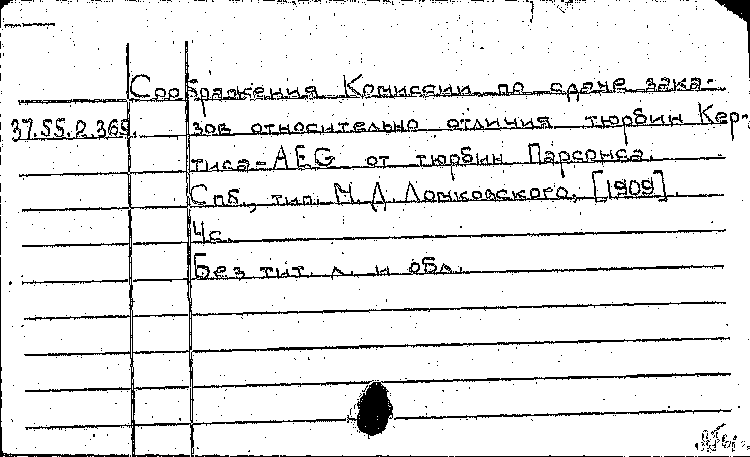 Соображения Комиссии по сдаче зака-
37.55.2.365.
зов относительно отличия тюрбин Кер-
тиса-AEG от тюрбин Парсонса.
Спб., тип. М.Д. Ломковского, [1909].
4с.
Без тит. л. и обл.